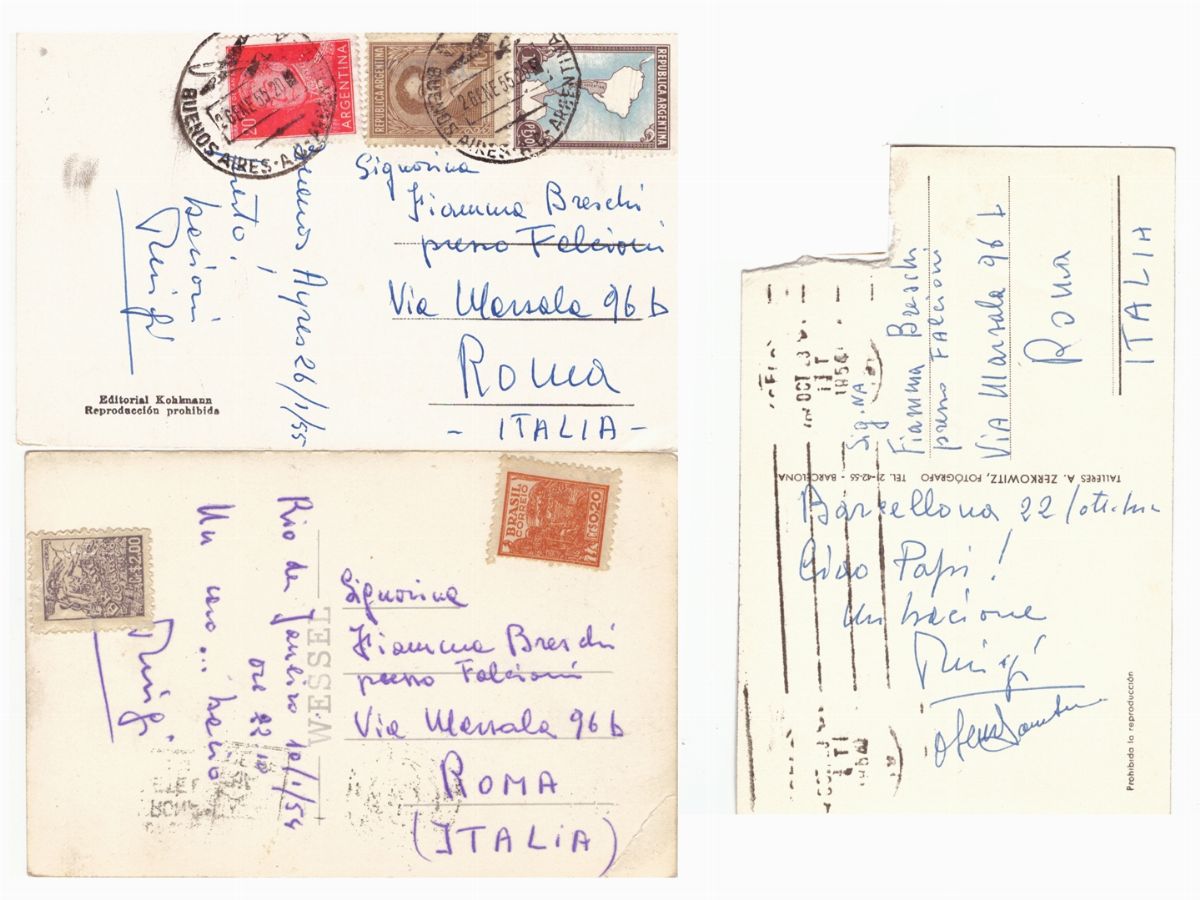 20
ARGENTINA
REPUBLICA ARGENTINA
REPUBLICA ARGENTINA
BUENOS AIRES
26 ENE 55 20
BUENOS AIRES
26 ENE 55 20
ARGENTINA
Signorina
Fiamma Breschi
presso Falcioni
Via Marsala 96 b
ROMA
- ITALIA -
Buenos Ayres 26/1/55
bacioni
Editorial Kohlmann
Reproducción prohibida
BRASIL
CORREIO
0.20
2.00
Rio de Janeiro 10/1/54
ore 22
Un caro... bacio
WESSEL
Signorina
Fiamma Breschi
presso Falcioni
Via Marsala 96 b
ROMA
(ITALIA)
OCT 23
1954
Sig.NA
Fiamma Breschi
presso FAlcioni
ViA MArsala 96 b
ROMA
ITALIA
TALLERES A. ZERKOWITZ, FOTÓGRAFO TEL. 21-42-55 - BARCELONA
Barcellona 22/ottobre
Ciao Papi!
Un bacione
Prohibida la reproducción